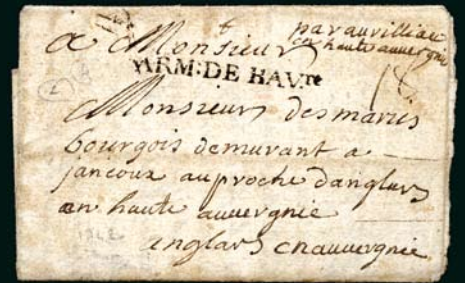 par auvilliac
en haute auvergnie
a Monsieur
ARM: DE BAV.re
18
Monsieur desmaries
bourgois demurant a
jancoux au proche danglars
en haute auvergnie
anglars en auvergnie